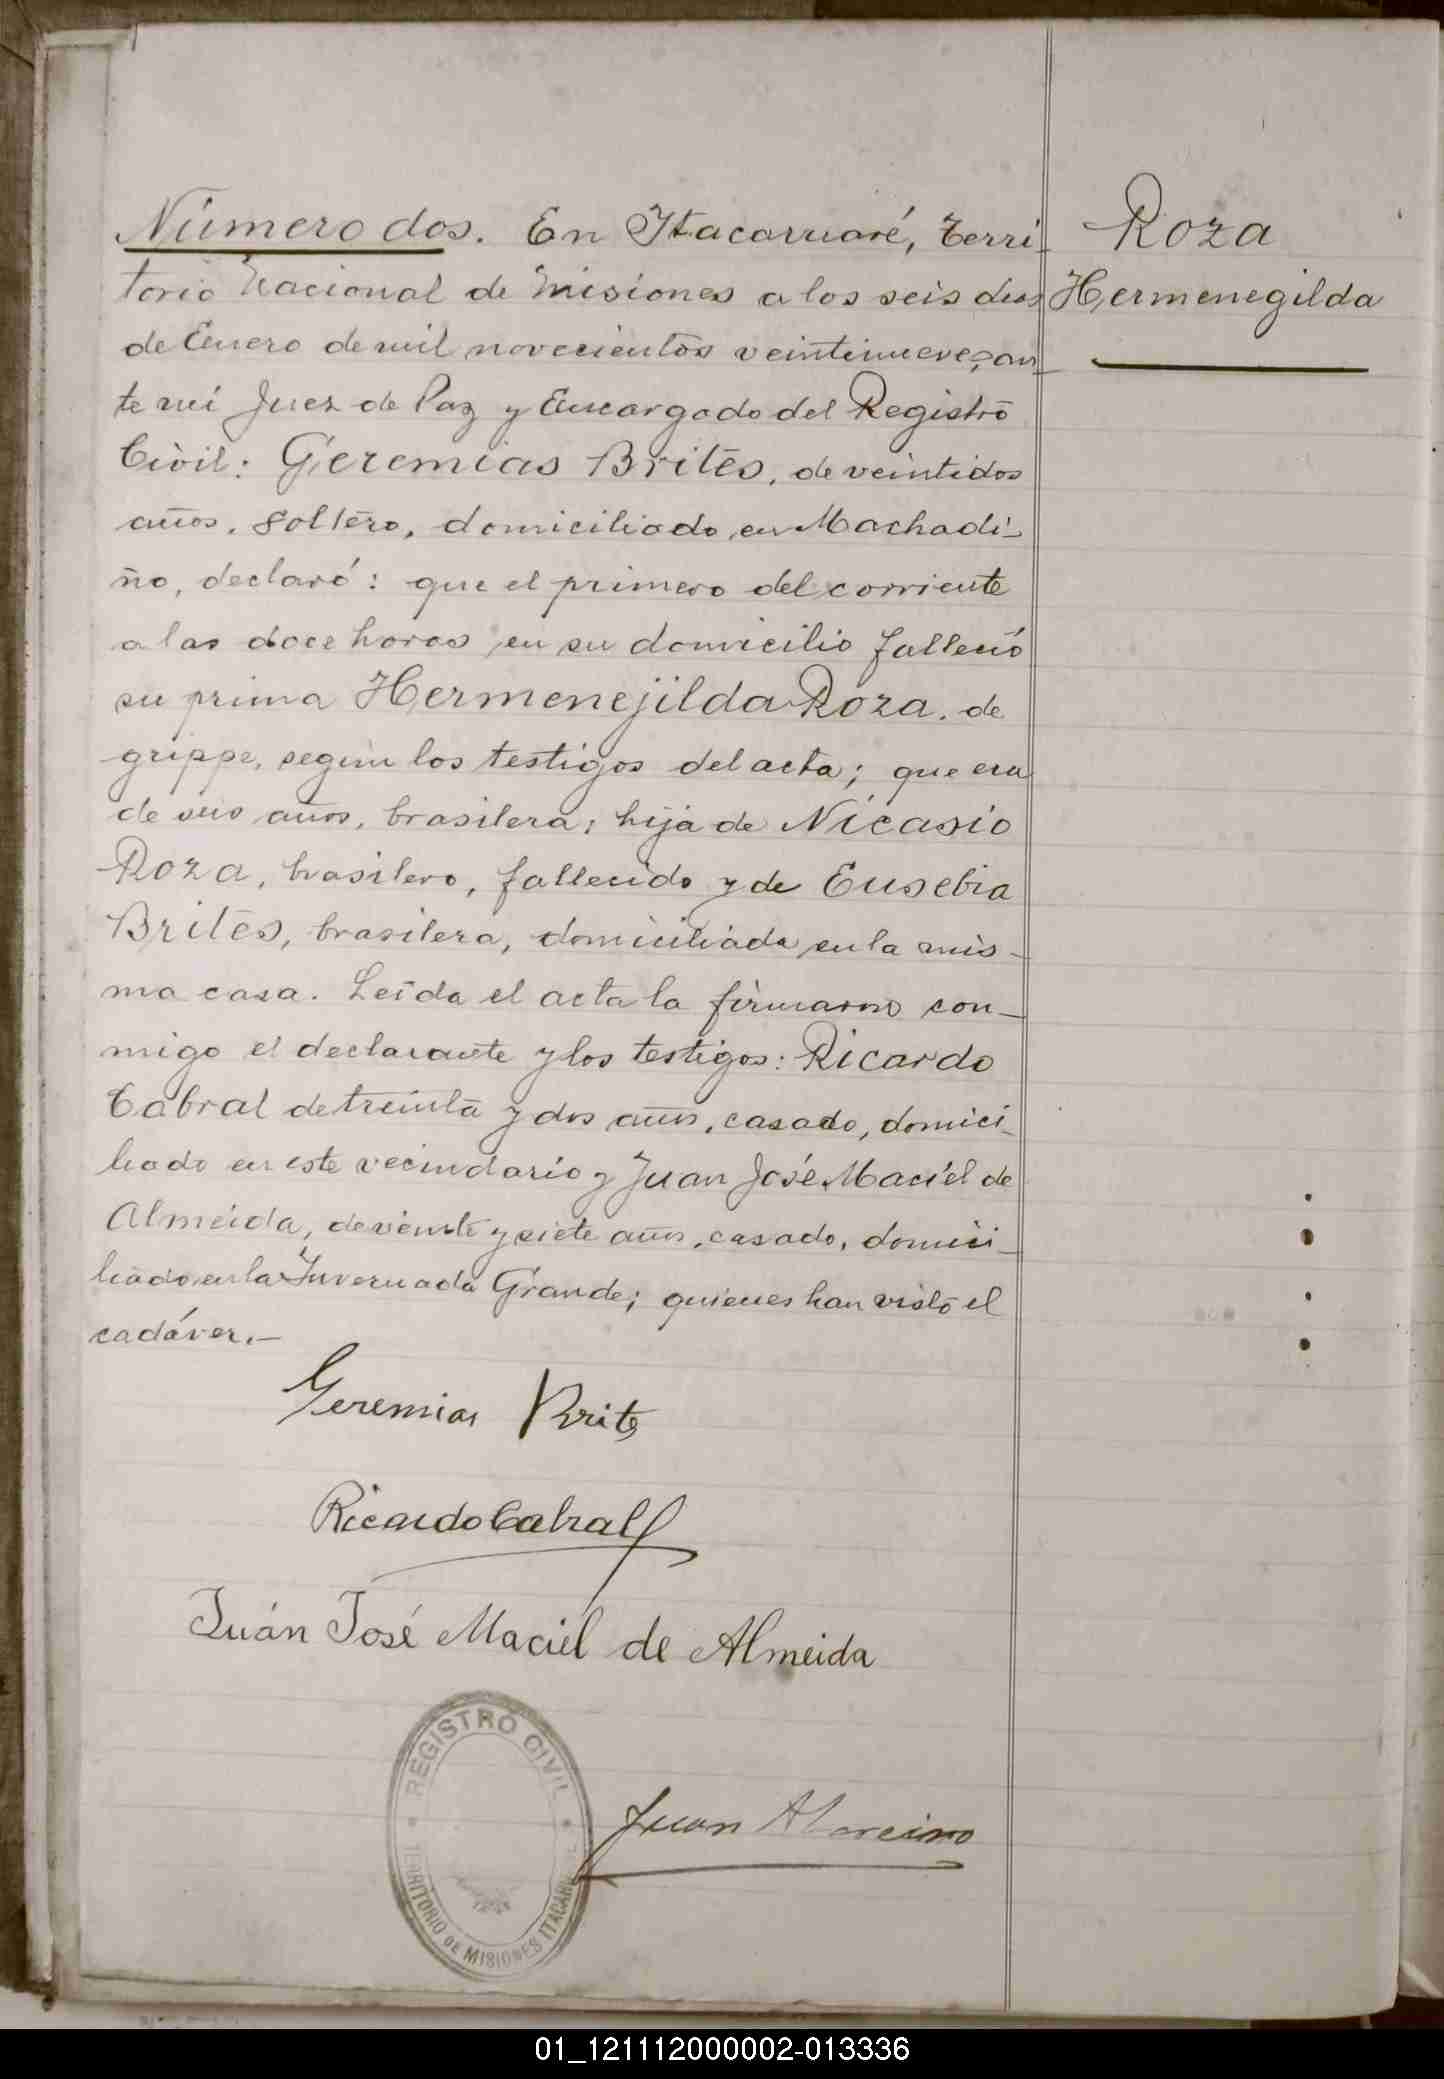 Número dos. En Itacaruaré, Terri-
torio Nacional de Misiones a los seis dias
de Enero de mil novecientos veintinueve, an-
te mi Juez de Paz y Encargado del Registro
Civil: Geremias Brites, de veintidos
años, soltero, domiciliado en Machadi-
ño, declaró: que el primero del corriente
a las doce horas en su domicilio falleció
su prima Hermenejilda Roza, de
grippe, según los testigos del acta; que era
de seis años, brasilera; hija de Nicasio
Roza, brasilero, fallecido y de Eusebia
Brites, brasilera, domiciliada en la mis-
ma casa. Leída el acta la firmaron con-
migo el declarante y los testigos: Ricardo
Cabral de treinta y dos años, casado, domici-
liado en este vecindario y Juan José Maciel de
Almeida, de veinte y siete años, casado, domici-
liado en la Invernada Grande; quienes han visto el
cadáver.—
Roza
Hermenegilda
Geremias Brites
Ricardo Cabral
Juán José Maciel de Almeida
REGISTRO CIVIL
TERRITORIO DE MISIONES
Juan
01_121112000002-013336